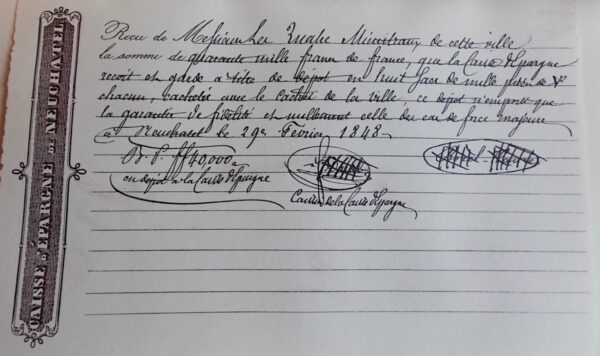 CAISSE D'ÉPARGNE DE NEUCHATEL
Recu de Messieurs Les Quatre Ministraux de cette ville
la somme de quarante mille francs de france, que la Caisse d'Epargne
recoit et garde à titre de dépot en huit sacs de mille pièces de
chacun, cachetés avec le cachet de la ville, ce dépot n'emporte que
la garantie de fidélité et nullement celle du cas de force majeure
à Neuchatel le 29e Février 1848.
B. P. ff 40,000.
en dépot à la Caisse d'Epargne
Caissier de la Caisse d'Epargne